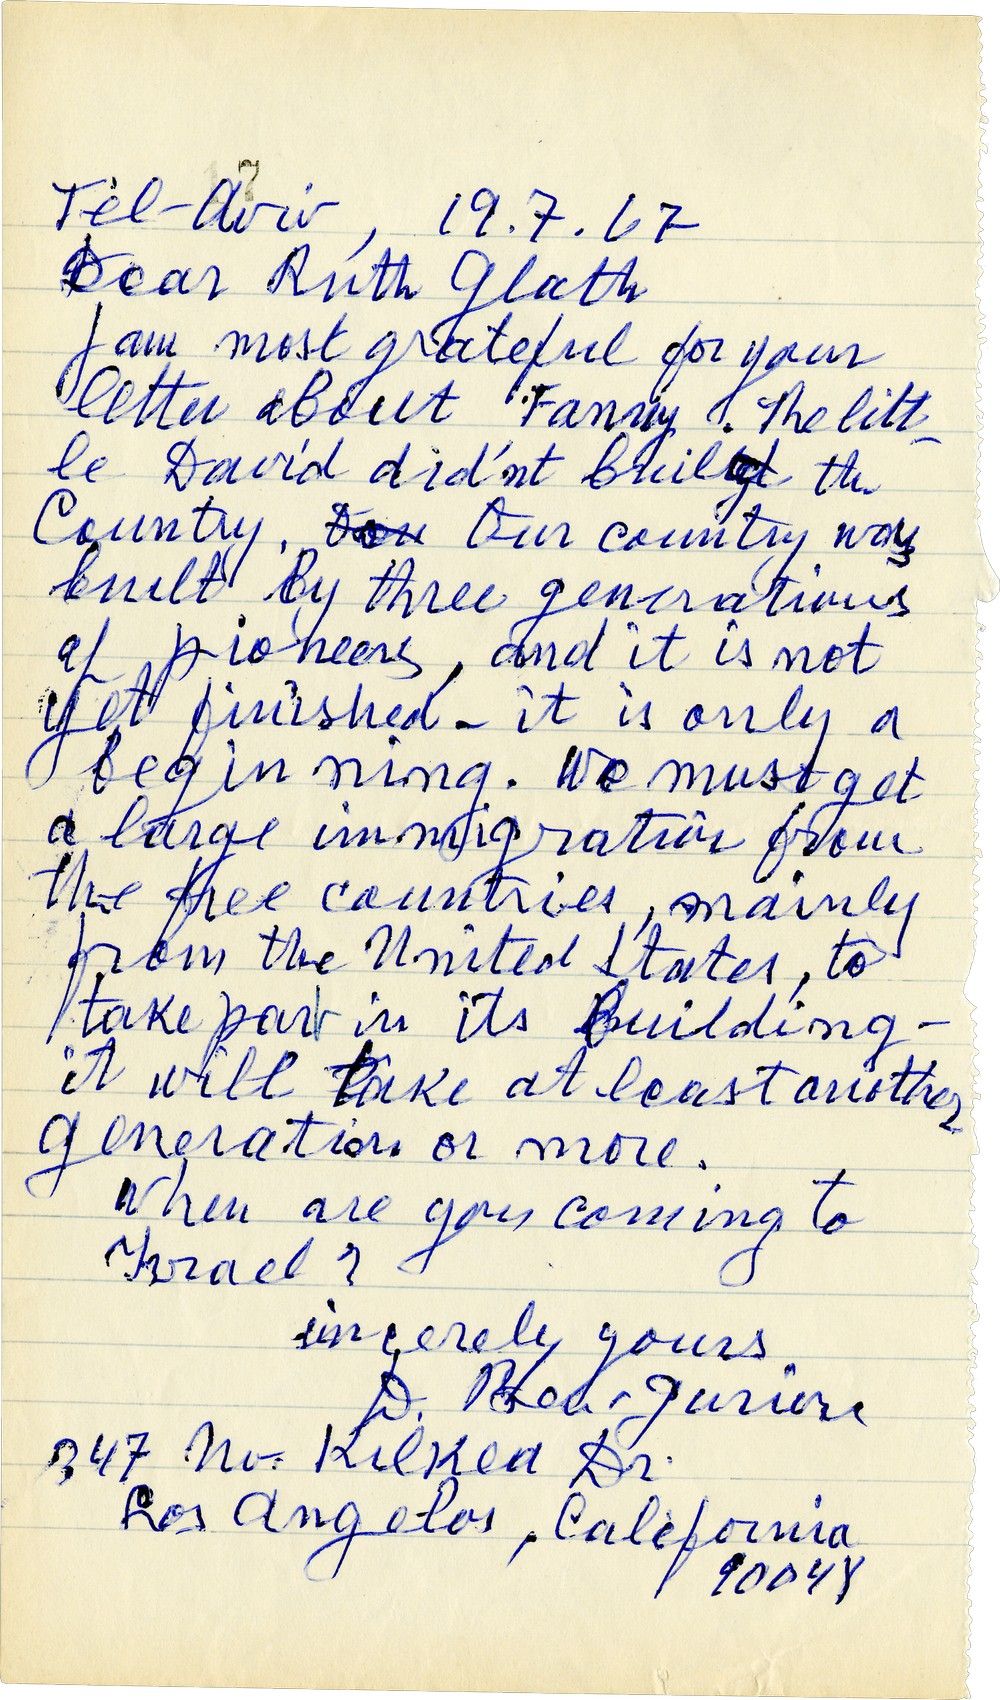 Tel-Aviv, 19.7.67
Dear Ruth Glath
I am most grateful for your
letter about "Fanny". The litt-
le David did'nt built the
Country. Our country was
built by three generations
of pioneers, and it is not
yet finished - it is only a
beginning. We must get
a large immigration from
the free countries, mainly
from the United States, to
take part in its Building -
it will take at least another
generation or more.
When are you coming to
Israel?
sincerely yours
D. Ben-Gurion
347 No. Kilkea Dr.
Los Angelos, California
90048